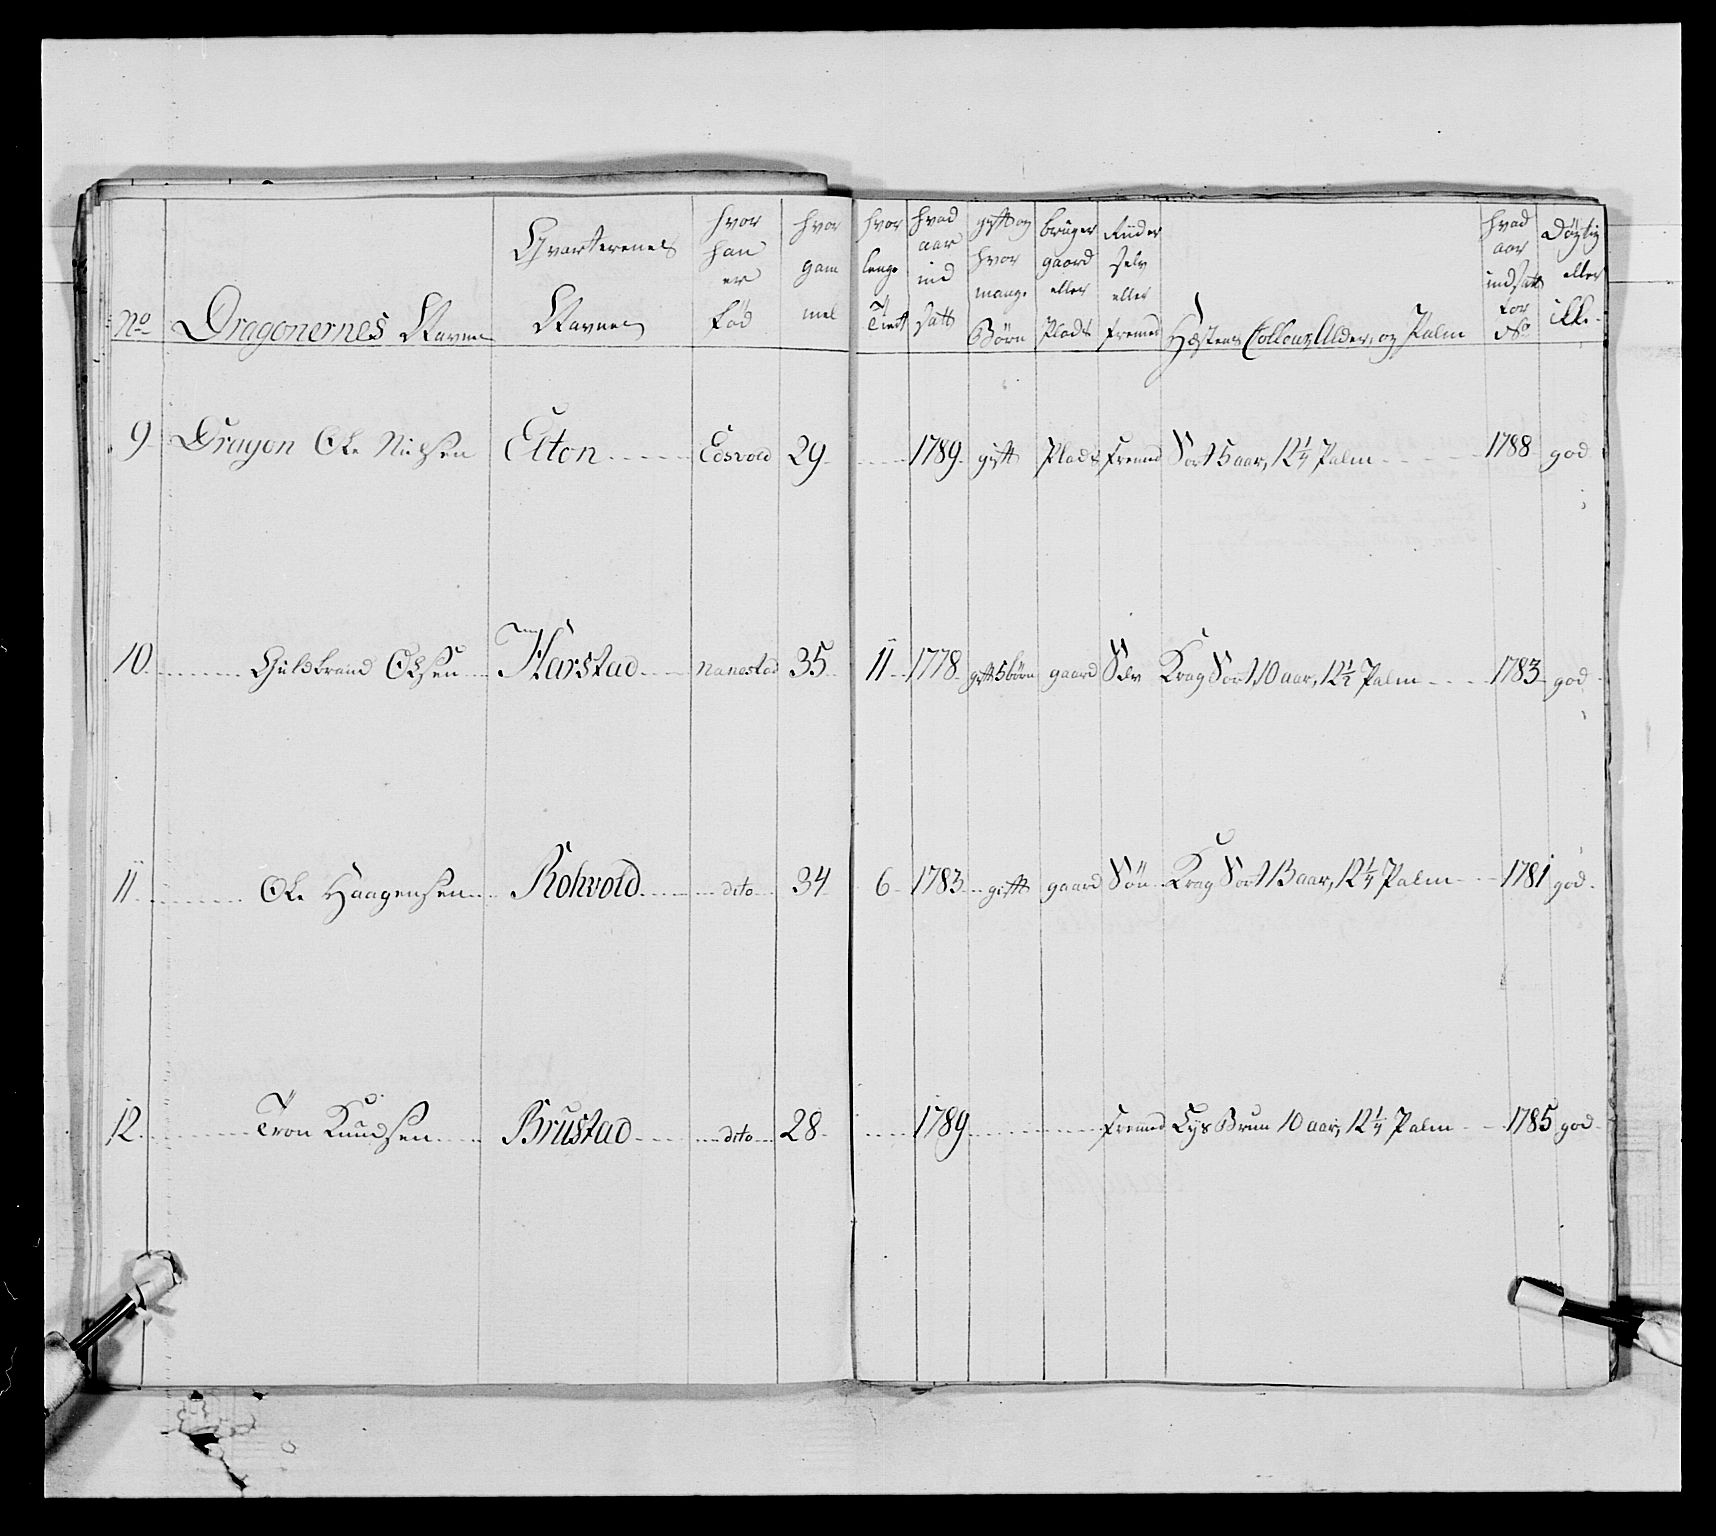 No Dragonernes Navne Qvarterenes Navne hvor han er född hvor gam mel hvor lenge Tient hvad aar ind satt gift og hvor mange Börn bruger gaard eller Plads Riider selv eller fremed Hæstens Collour, Alder, og Palm hvad aar indsatt for No Dögtig eller ikke
9 Dragon Ole Nielsen Elton Edsvold 29 1789 gift Plads fremed Sort 5 aar, 12 1/4 Palm 1788 god
10 Guldbrand Olsen Harstad Nanestad 35 11 1778 gift 5 börn gaard Selv Krag Sort 10 aar, 12 1/2 Palm 1783 god
11 Ole Haagensen Rohvold dito 34 6 1783 gift gaard Sön Krag Sort 13 aar, 12 1/4 Palm 1781 god
12 Tron Knudsen Brustad dito 28 1789 fremed Lys Brun 10 aar, 12 1/4 Palm 1785 god